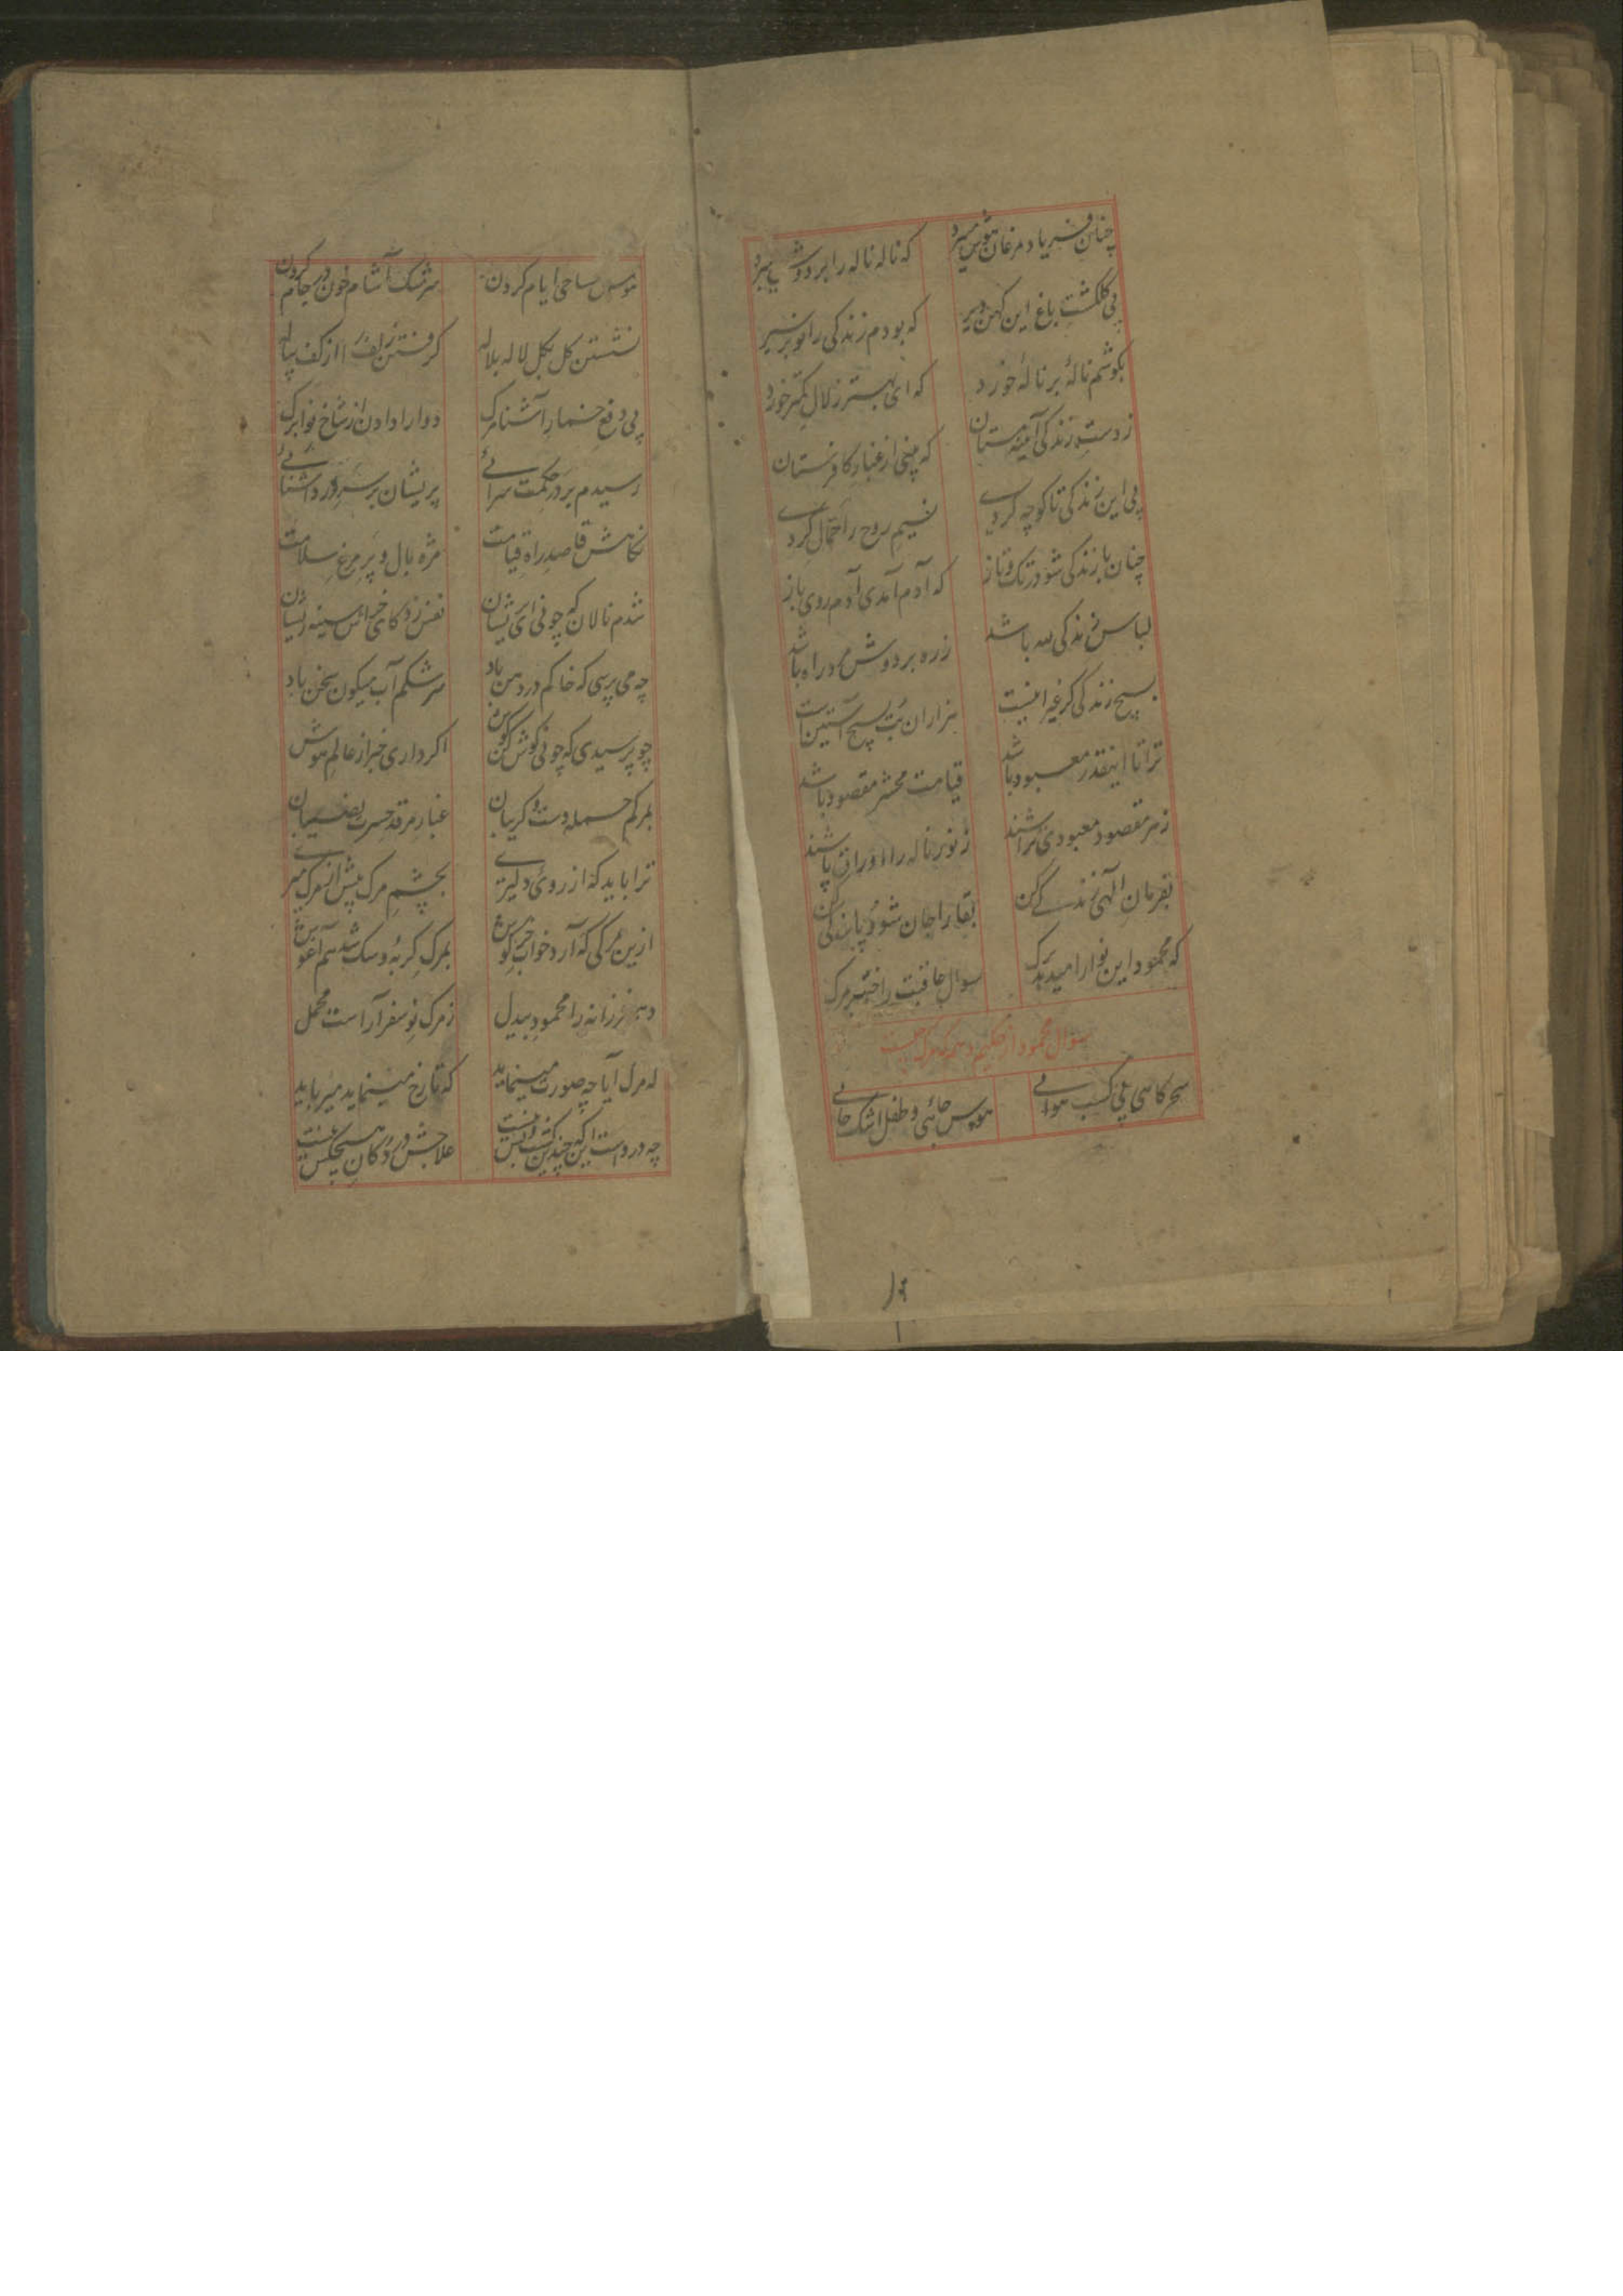 چنان فریاد مرغان هوش میبرد
که ناله ناله را بر دوش میبرد
پی گلگشت باغ این کهن دیر
که بودم زندگی را نوبر سیر
بگوشم نالهٔ بر نالهٔ خورد
که ای بهتر ز لال کمتر خورد
ز دست زندگی آئینه مستان
که چینی از غبار کافرستان
پی این زندگی تا کوچه گردی
نسیم روح را حمال گردی
چنان با زندگی شو در تک و تاز
که آدم آمدی آدم روی باز
لباس زندگی لله باشد
زره بر دوش مرد راه باشد
بسیج زندگی گر غیر ازینست
هزاران بت بسیج آستین است
ترا تا اینقدر معبود باشد
قیامت محشر مقصود باشد
ز هر مقصود معبودی تراشند
ز نو بر ناله را اوراق پاشند
بفرمان الهی زندگی کن
بقا را جان شو و پابندگی کن
که محمود این نوا را میدهد برگ
سوال عاقبت را ختم بر مرگ
سوال محمود از حکیم دهر که مرگ چیست
سحرگاهی پی کسب هوائی
هوس جائی و طفل اشک جائی
هوس ساحی ایام کردن
سرشک آشام خون در جام کردن
نشستن گل بگل لاله بلاله
گرفتن زلف را از کف پیاله
پی دفع خمار آشنا مرگ
دوا را دادن از شاخ نوا برگ
رسیدم بر در حکمت سرائی
پریشان بر سر درد آشنائی
نگاهش قاصد راه قیامت
مژه بال و پر مرغ سلامت
شدم نالان که چونی ای پریشان
نفس زد کای خراش سینه ریشان
چه می پرسی که خاکم در دهن باد
سرشکم آب میگون سخن باد
چو پرسیدی که چونی گوش کن گوش
اگر داری خبر از عالم هوش
بمرگم حمله دست و گریبان
غبار مرقد حسرت نصیبان
ترا باید که از روی دلیری
بچشم مرگ پیش از مرگ میری
ازین مرگی که آرد خواب خرگوش
بمرگ گربه و سگ شد هم آغوش
دهر فرزانه را محمود بیدل
ز مرگ نو سفر آراست محمل
که مرگ آیا چه صورت مینماید
که تا رخ مینماید میرباید
چه دردست این که چندین کشت و بس نیست
علاجش در دکان هیچکس نیست
۱۹